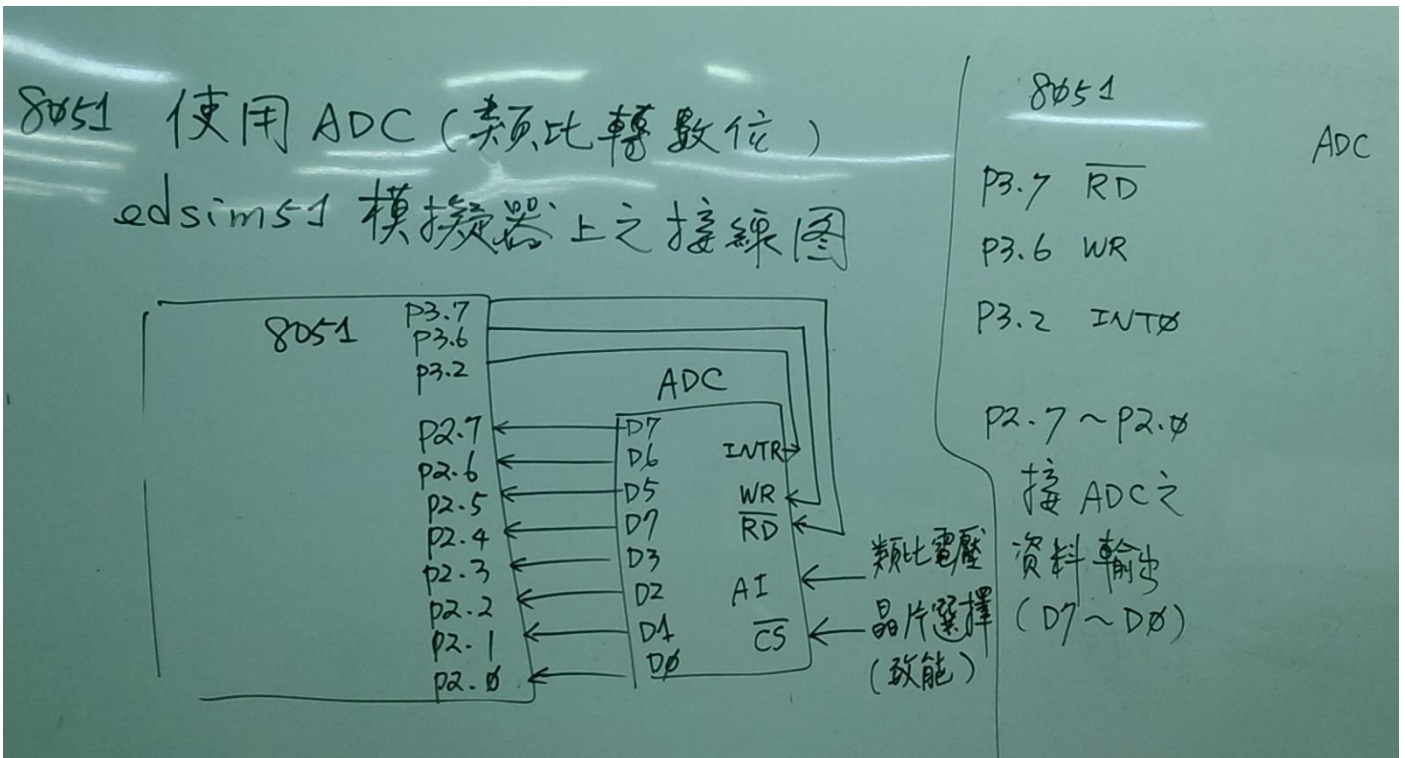 8051 使用 ADC (類比轉數位)
edsim51 模擬器上之接線图
8051
P3.7
P3.6
P3.2
P2.7
P2.6
P2.5
P2.4
P2.3
P2.2
P2.1
P2.0
ADC
D7
D6
D5
D7
D3
D2
D1
D0
INTR
WR
R̅D̅
AI
C̅S̅
類比電壓
晶片選擇
(致能)
8051
ADC
P3.7 R̅D̅
P3.6 WR
P3.2 INT0
P2.7~P2.0
接 ADC之
资料輸出
(D7~D0)